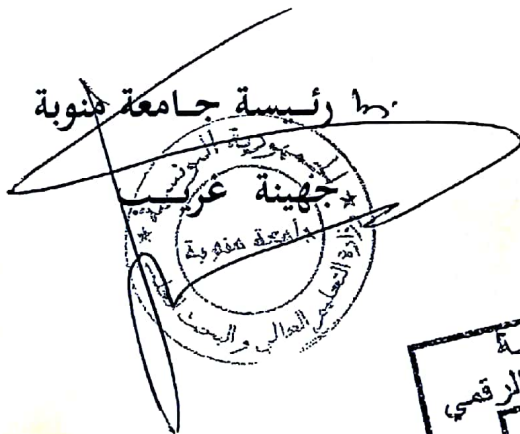 رئيسة جامعة منوبة
جهينة غريب
الجمهورية التونسية
جامعة منوبة
وزارة التعليم العالي و البحث العلمي
الرقمي